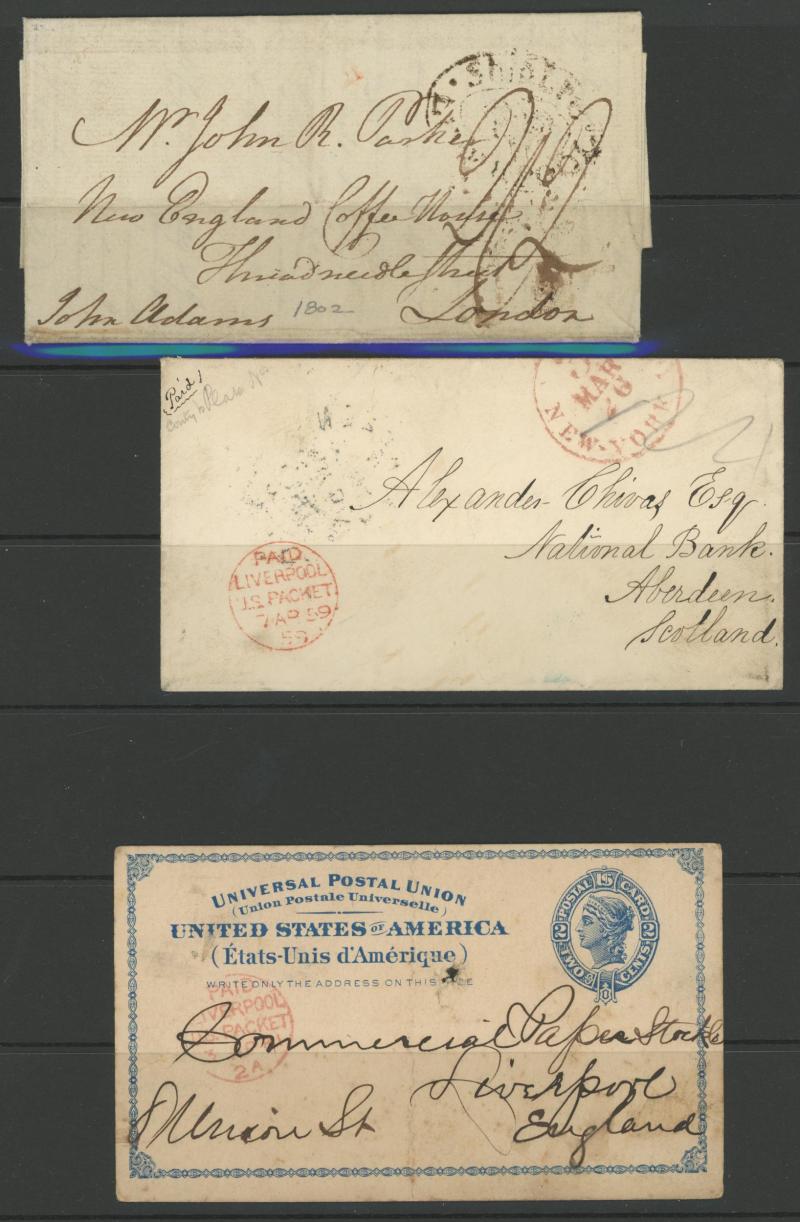 Ship Le
Mr. John R. Parker
New England Coffee House
Threadneedle Street
John Adams 1802 London
2/2
Paid
MAR
NEW-YORK
Alexander Chivas Esq.
National Bank.
Aberdeen.
Scotland.
PAID
LIVERPOOL
U.S. PACKET
7 AP 59
59
UNIVERSAL POSTAL UNION
(Union Postale Universelle)
UNITED STATES OF AMERICA
(États-Unis d'Amérique)
WRITE ONLY THE ADDRESS ON THIS SIDE
POSTAL U.S. CARD
TWO CENTS
PAID
LIVERPOOL
PACKET
2A
Commercial Paper Stock Co
Liverpool
8 Union St England